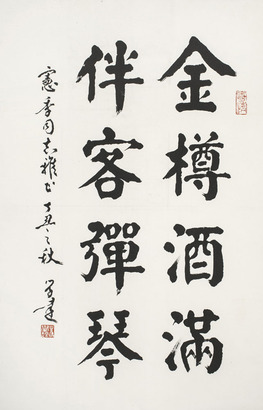 金樽酒滿
伴客彈琴
憲季同志雅正 丁丑之秋